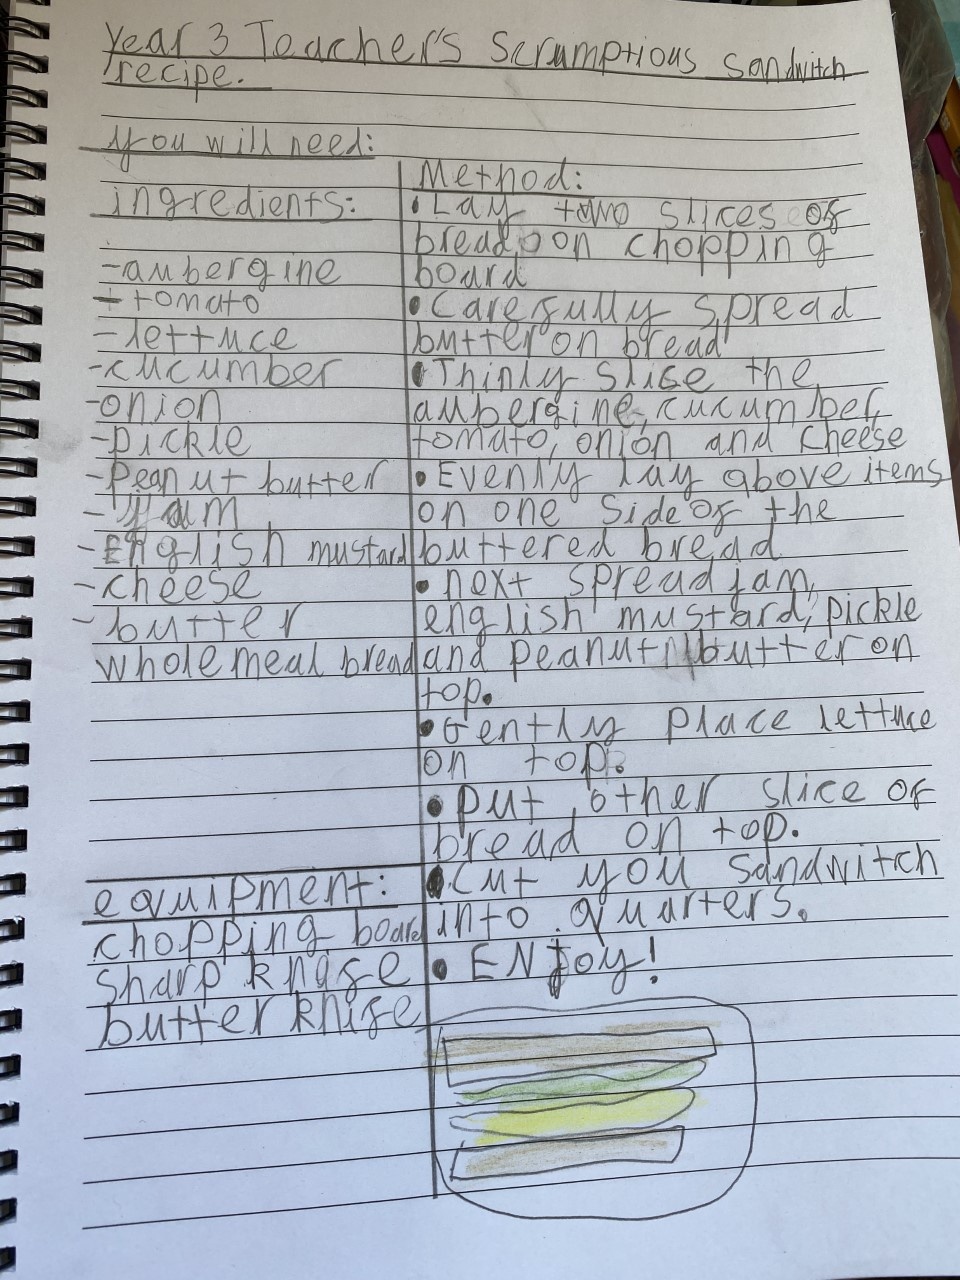 Year 3 Teacher's Scrumptious Sandwitch
recipe.
you will need:
ingredients:
- aubergine
- tomato
- lettuce
- cucumber
- onion
- pickle
- Peanut butter
- jam
- English mustard
- cheese
- butter
wholemeal bread
equipment:
chopping board
sharp knife
butter knife
Method:
• Lay two slices of
bread on chopping
board
• Carefully spread
butter on bread
• Thinly slise the
aubergine, cucumber,
tomato, onion and cheese
• Evenly lay above items
on one side of the
buttered bread
• next spread jam,
english mustard, pickle
and peanut butter on
top.
• Gently place lettuce
on top.
• put other slice of
bread on top.
• Cut you sandwitch
into quarters.
• ENjoy!